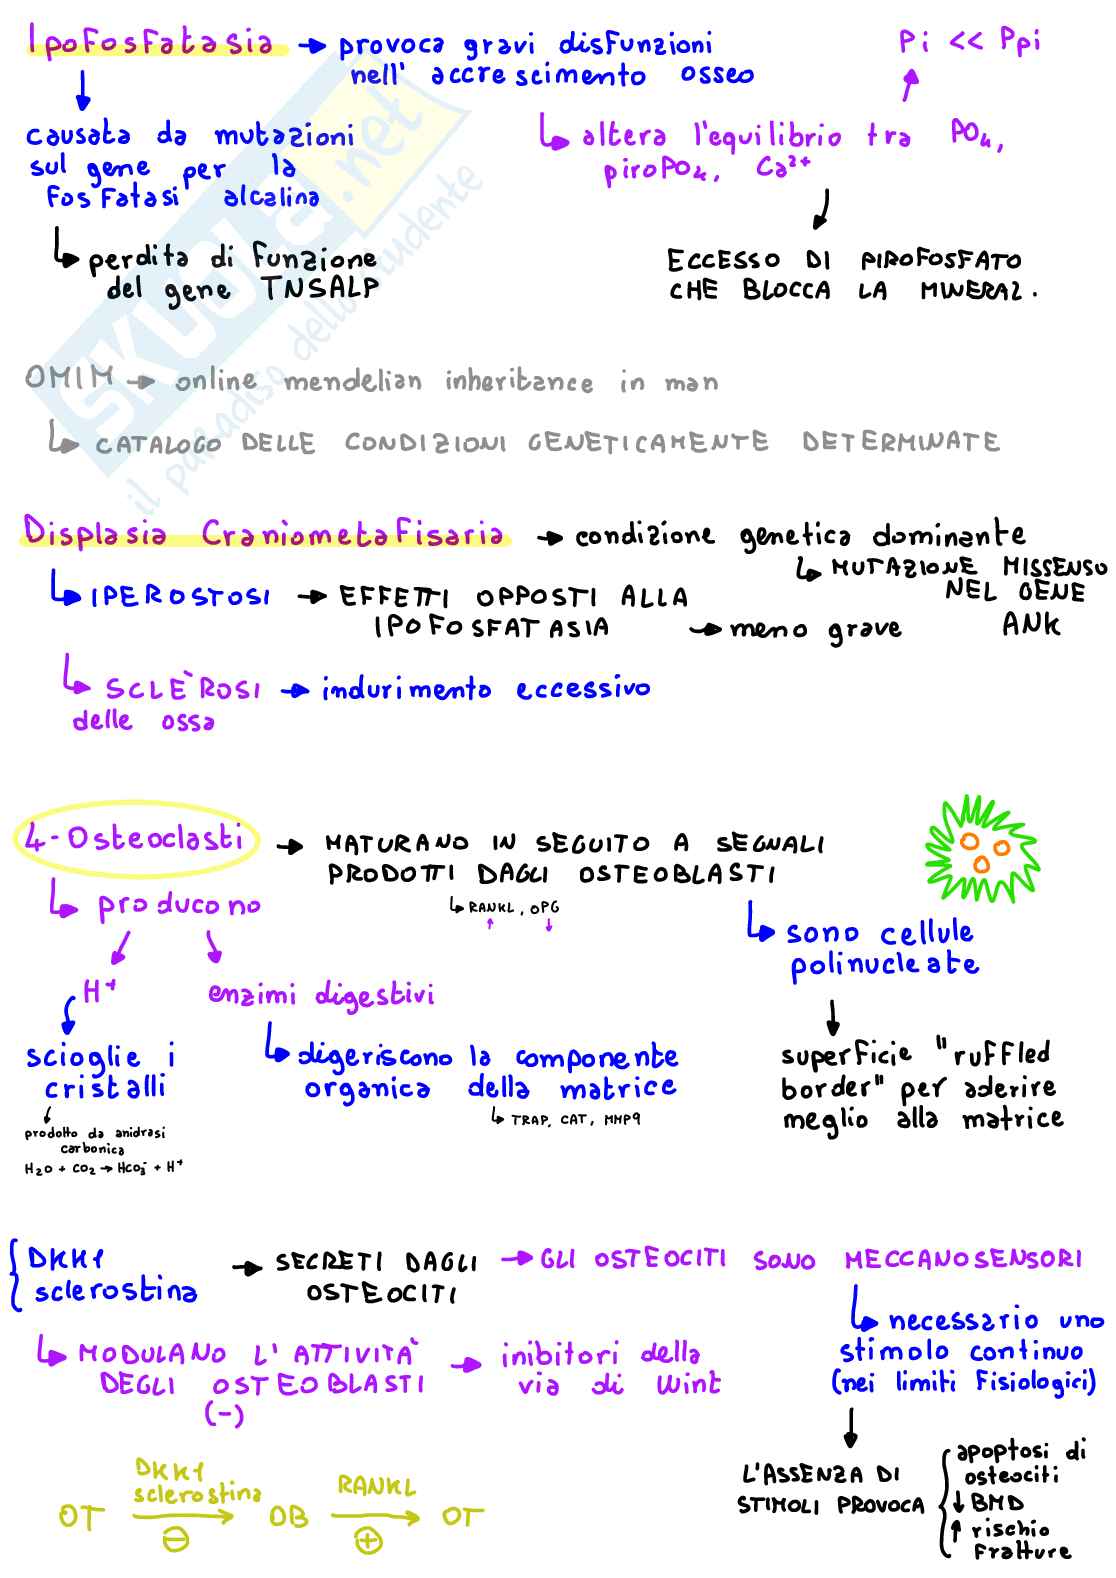 Ipofosfatasia → provoca gravi disfunzioni
nell' accrescimento osseo
Pi << Ppi
causata da mutazioni
sul gene per la
fosfatasi alcalina
altera l'equilibrio tra PO₄,
piroPO₄, Ca²⁺
perdita di funzione
del gene TNSALP
ECCESSO DI PIROFOSFATO
CHE BLOCCA LA MINERAZ.
OMIM → online mendelian inheritance in man
CATALOGO DELLE CONDIZIONI GENETICAMENTE DETERMINATE
Displasia Craniometafisaria → condizione genetica dominante
MUTAZIONE MISSENSO
NEL GENE
ANK
IPEROSTOSI → EFFETTI OPPOSTI ALLA
IPOFOSFATASIA → meno grave
SCLÈROSI → indurimento eccessivo
delle ossa
4-Osteoclasti → MATURANO IN SEGUITO A SEGNALI
PRODOTTI DAGLI OSTEOBLASTI
RANKL, OPG
↑ ↓
producono
sono cellule
polinucleate
H⁺
enzimi digestivi
scioglie i
cristalli
digeriscono la componente
organica della matrice
TRAP, CAT, MMP9
superficie "ruffled
border" per aderire
meglio alla matrice
prodotto da anidrasi
carbonica
H₂O + CO₂ → HCO₃⁻ + H⁺
DKK1
sclerostina
→ SECRETI DAGLI
OSTEOCITI
→ GLI OSTEOCITI SONO MECCANOSENSORI
MODULANO L'ATTIVITÀ
DEGLI OSTEOBLASTI
(-)
→ inibitori della
via di Wint
necessario uno
stimolo continuo
(nei limiti fisiologici)
L'ASSENZA DI
STIMOLI PROVOCA
apoptosi di
osteociti
↓ BMD
↑ rischio
fratture
DKK1
sclerostina
RANKL
OT → OB → OT
⊖ ⊕
SKUOLA.net
il paradiso dello studente